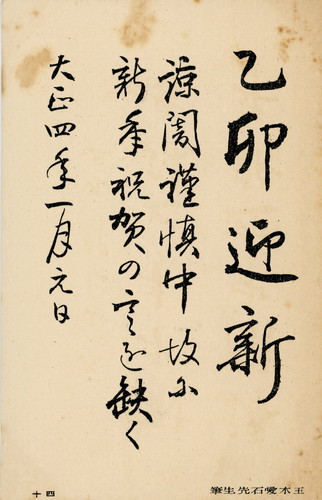 乙卯迎新
諒闇謹慎中故に
新年祝賀の言を缺く
大正四年一月元日
玉木愛石先生筆
四十